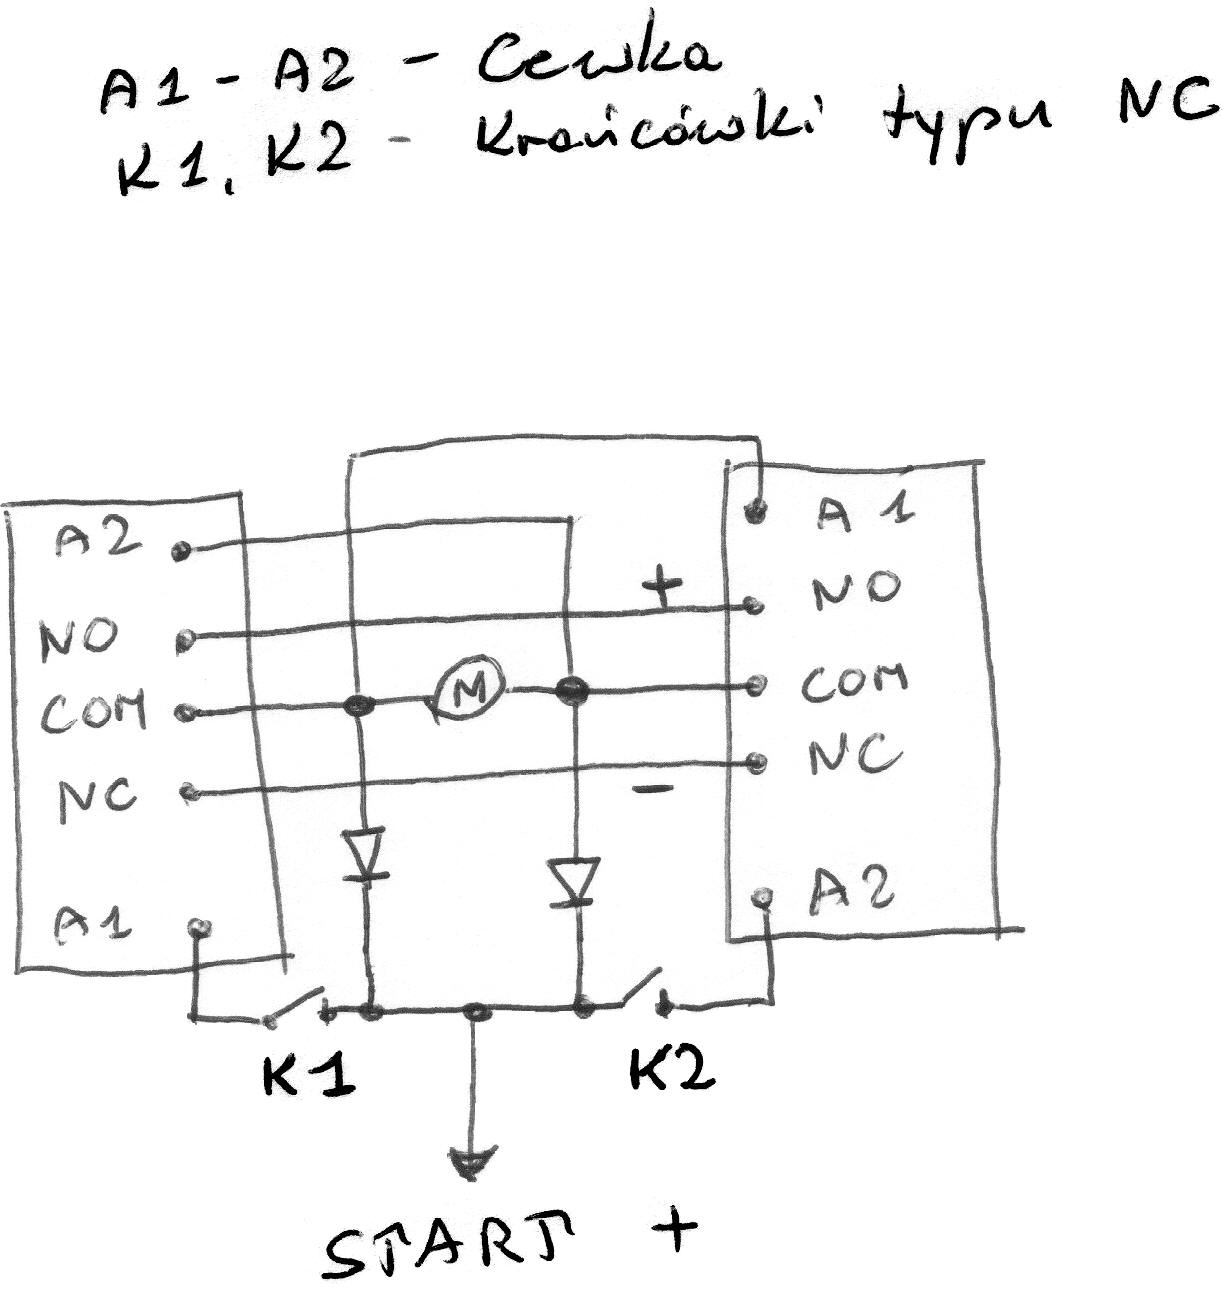 A1 - A2 - Cewka
K1, K2 - Krańcówki typu NC
A2
NO
COM
NC
A1
M
+
-
A1
NO
COM
NC
A2
K1
K2
START +